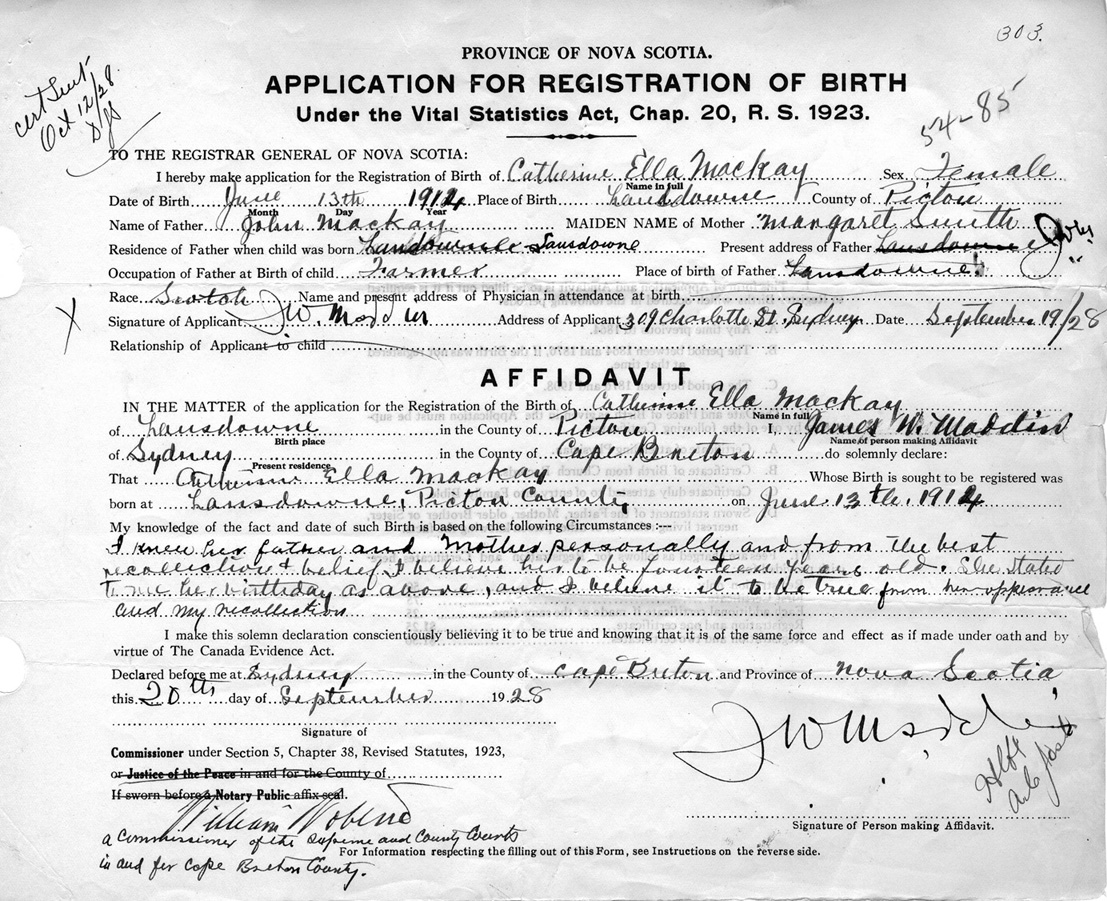 303.
PROVINCE OF NOVA SCOTIA.
APPLICATION FOR REGISTRATION OF BIRTH
Under the Vital Statistics Act, Chap. 20, R. S. 1923.
cert sent
Oct 12/28
54-85
TO THE REGISTRAR GENERAL OF NOVA SCOTIA:
I hereby make application for the Registration of Birth of Catherine Ella Mackay Sex Female
Name in full
Date of Birth June 13th 1914 Place of Birth Lansdowne County of Pictou
Month Day Year
Name of Father John Mackay MAIDEN NAME of Mother Margaret Smith
Residence of Father when child was born Lansdowne Present address of Father Lansdowne
Occupation of Father at Birth of child Farmer Place of birth of Father Lansdowne
Race Scotch Name and present address of Physician in attendance at birth
Signature of Applicant J W. Maddin Address of Applicant 309 Charlotte St. Sydney Date September 19/28
Relationship of Applicant to child
AFFIDAVIT
IN THE MATTER of the application for the Registration of the Birth of Catherine Ella Mackay
Name in full
of Lansdowne in the County of Pictou I, James W. Maddin
Birth place Name of person making Affidavit
of Sydney in the County of Cape Breton do solemnly declare:
Present residence
That Catherine Ella Mackay Whose Birth is sought to be registered was
born at Lansdowne, Pictou County on June 13th, 1914
My knowledge of the fact and date of such Birth is based on the following Circumstances :—
I knew her father and Mother personally and from the best
recollection & belief I believe her to be fourteen years old. She stated
to me her birthday as above, and I believe it to be true from her appearance
and my recollection
I make this solemn declaration conscientiously believing it to be true and knowing that it is of the same force and effect as if made under oath and by
virtue of The Canada Evidence Act.
Declared before me at Sydney in the County of Cape Breton and Province of Nova Scotia
this 20th day of September 1928
J W Maddin
Signature of
Commissioner under Section 5, Chapter 38, Revised Statutes, 1923,
or Justice of the Peace in and for the County of
If sworn before a Notary Public affix seal.
William
a Commissioner of the Supreme and County Courts
in and for Cape Breton County.
Signature of Person making Affidavit.
For Information respecting the filling out of this Form, see Instructions on the reverse side.